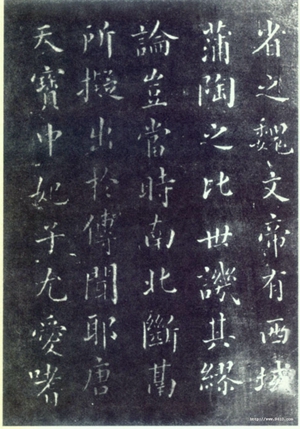 省之魏文帝有西域
蒲陶之比世譏其繆
論豈當時南北斷
所擬出於傳聞耶唐
天寶中妃子尤愛嗜